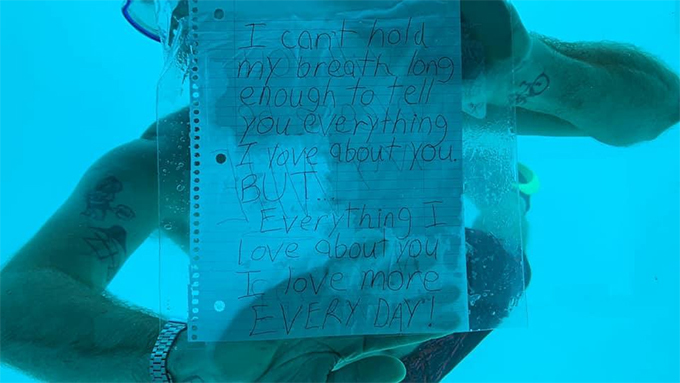 I can't hold
my breath long
enough to tell
you everything
I love about you.
BUT.
Everything I
Love about you
I love more
EVERY DAY!